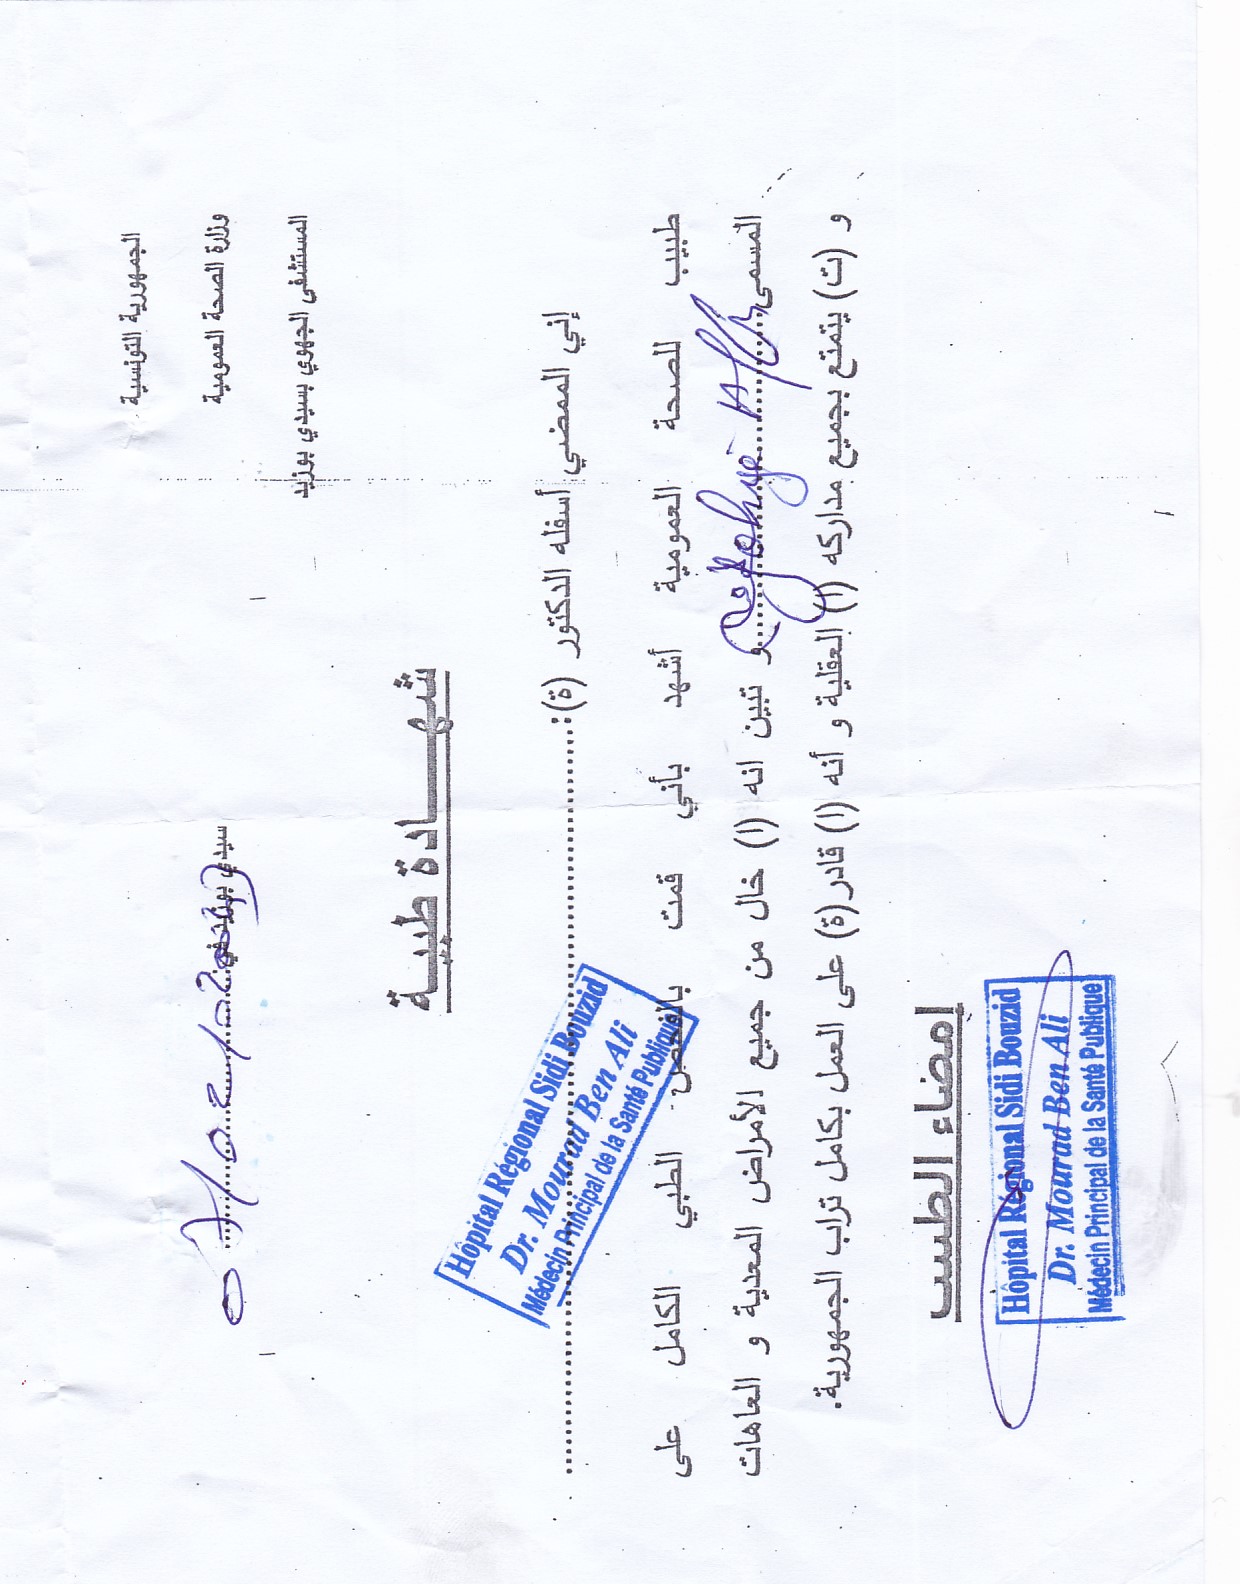 الجمهورية التونسية
وزارة الصحة العمومية
المستشفى الجهوي بسيدي بوزيد
سيدي بوزيد في
شهـــادة طبيـة
إني الممضي أسفله الدكتور (ة):
Hôpital Régional Sidi Bouzid
Dr. Mourad Ben Ali
Médecin Principal de la Santé Publique
طبيب للصحة العمومية أشهد بأني قمت بالفحص الطبي الكامل على
المسمى و تبين انه (ا) خال من جميع الأمراض المعدية و العاهات
و (ت) يتمتع بجميع مداركه (ا) العقلية و أنه (ا) قادر(ة) على العمل بكامل تراب الجمهورية.
إمضاء الطبيب
Hôpital Régional Sidi Bouzid
Dr. Mourad Ben Ali
Médecin Principal de la Santé Publique